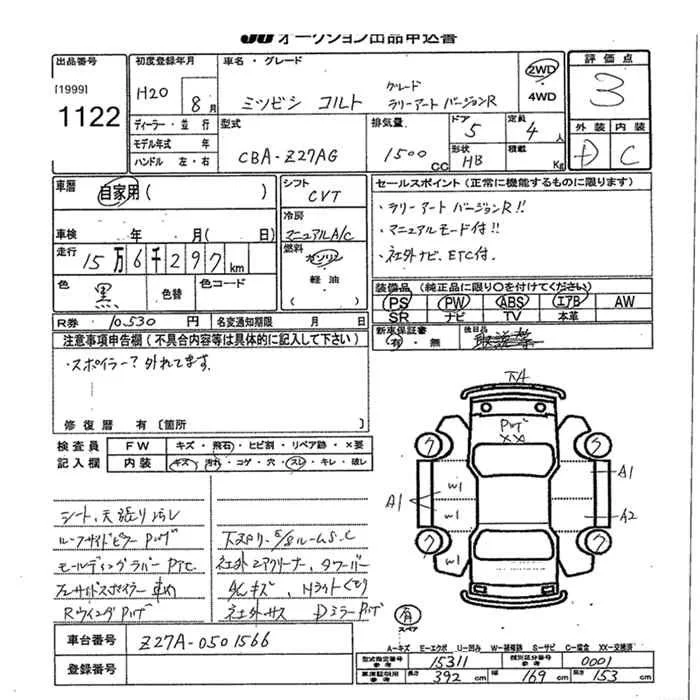 JU オークション出品申込書
出品番号
[1999]
1122
初度登録年月
H20 8月
ディーラー・並行
モデル年式 年
ハンドル 左・右
車名・グレード
ミツビシ コルト
グレード
ラリーアート バージョンR
2WD
4WD
型式
CBA-Z27AG
排気量
1500 CC
ドア
5
定員
4人
形状
HB
積載
Kg
評価点
3
外装 内装
D C
車歴 自家用( )
車検 年 月( 日)
走行 15万6千297km
色 黒 色替 色コード
シフト
CVT
冷房
マニュアルA/C
燃料
ガソリン
軽油
セールスポイント(正常に機能するものに限ります)
・ラリーアート バージョンR!!
・マニュアルモード付!!
・社外ナビ、ETC付.
装備品(純正品に限り○を付けてください)
PS PW ABS エアB AW
SR ナビ TV 本革
新車保証書
有・無
後日品
R券 10,530円 名変通知期限 月 日
注意事項申告欄(不具合内容等は具体的に記入して下さい)
・スポイラー?外れてます.
修復歴 有[箇所
検査員
記入欄
FW キズ・飛石・ヒビ割・リペア跡・×要
内装 キズ・汚れ・コゲ・穴・スレ・キレ・破レ
シート、天張り汚レ
ルーフサイドピラー
モールディングラバー
Rウイング
社外エアクリーナー、タワーバー
下キズ、Hライトくもり
社外サス Dミラー
下A
XX
W1
W1
W1
A1
A1
A2
ク
ク
ク
ク
有
スペア
A-キズ E-エクボ U-凹み W-補修跡 S-サビ C-腐食 XX-交換済
車台番号 Z27A-0501566
登録番号
型式指定番号 参考 15311
類別区分番号 参考 0001
車庫証明用 参考 長さ 392cm 幅 169cm 高さ 153cm